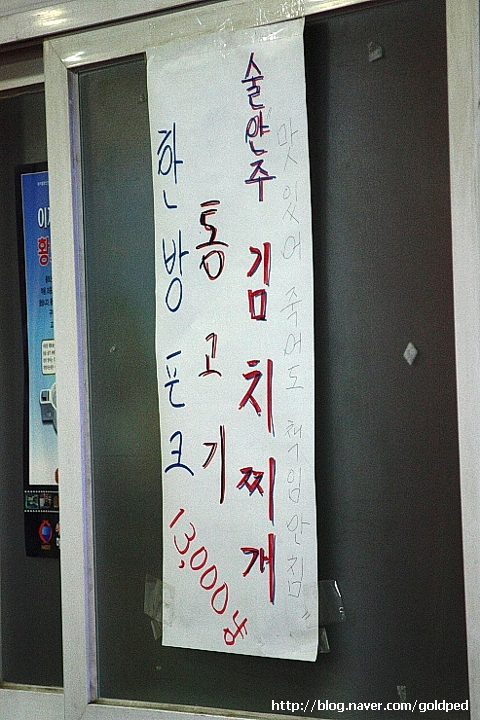 한방 포크
통고기
술안주 김치찌개
맛있어 죽어도 책임안짐
13,000원
http://blog.naver.com/goldped